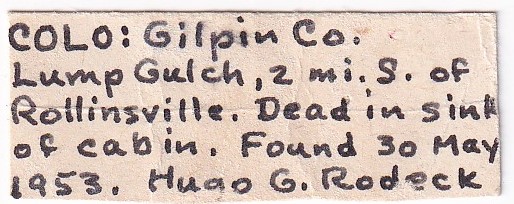 COLO: Gilpin Co.
Lump Gulch, 2 mi. S. of
Rollinsville. Dead in sink
of cabin. Found 30 May
1953. Hugo G. Rodeck